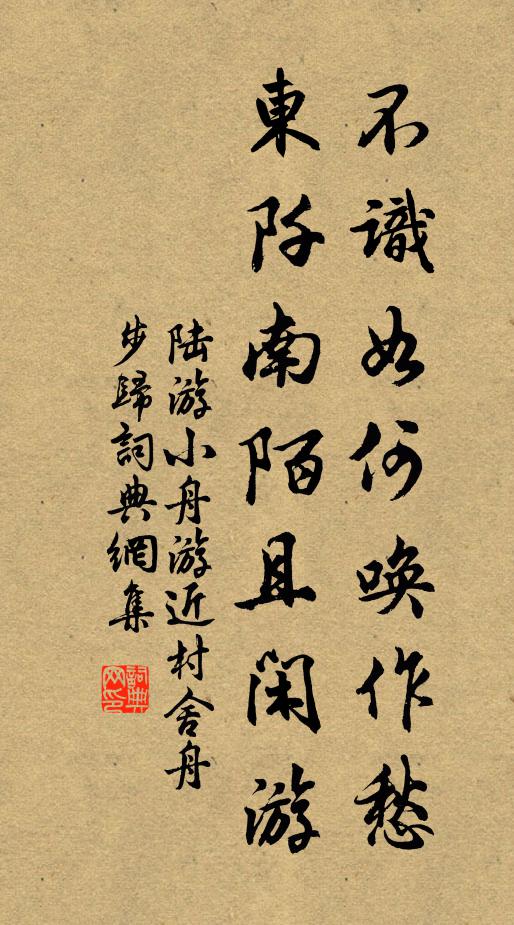 不識如何喚作愁
東阡南陌且閑游
陆游小舟游近村舍舟
步歸詞典網集
詞典网印